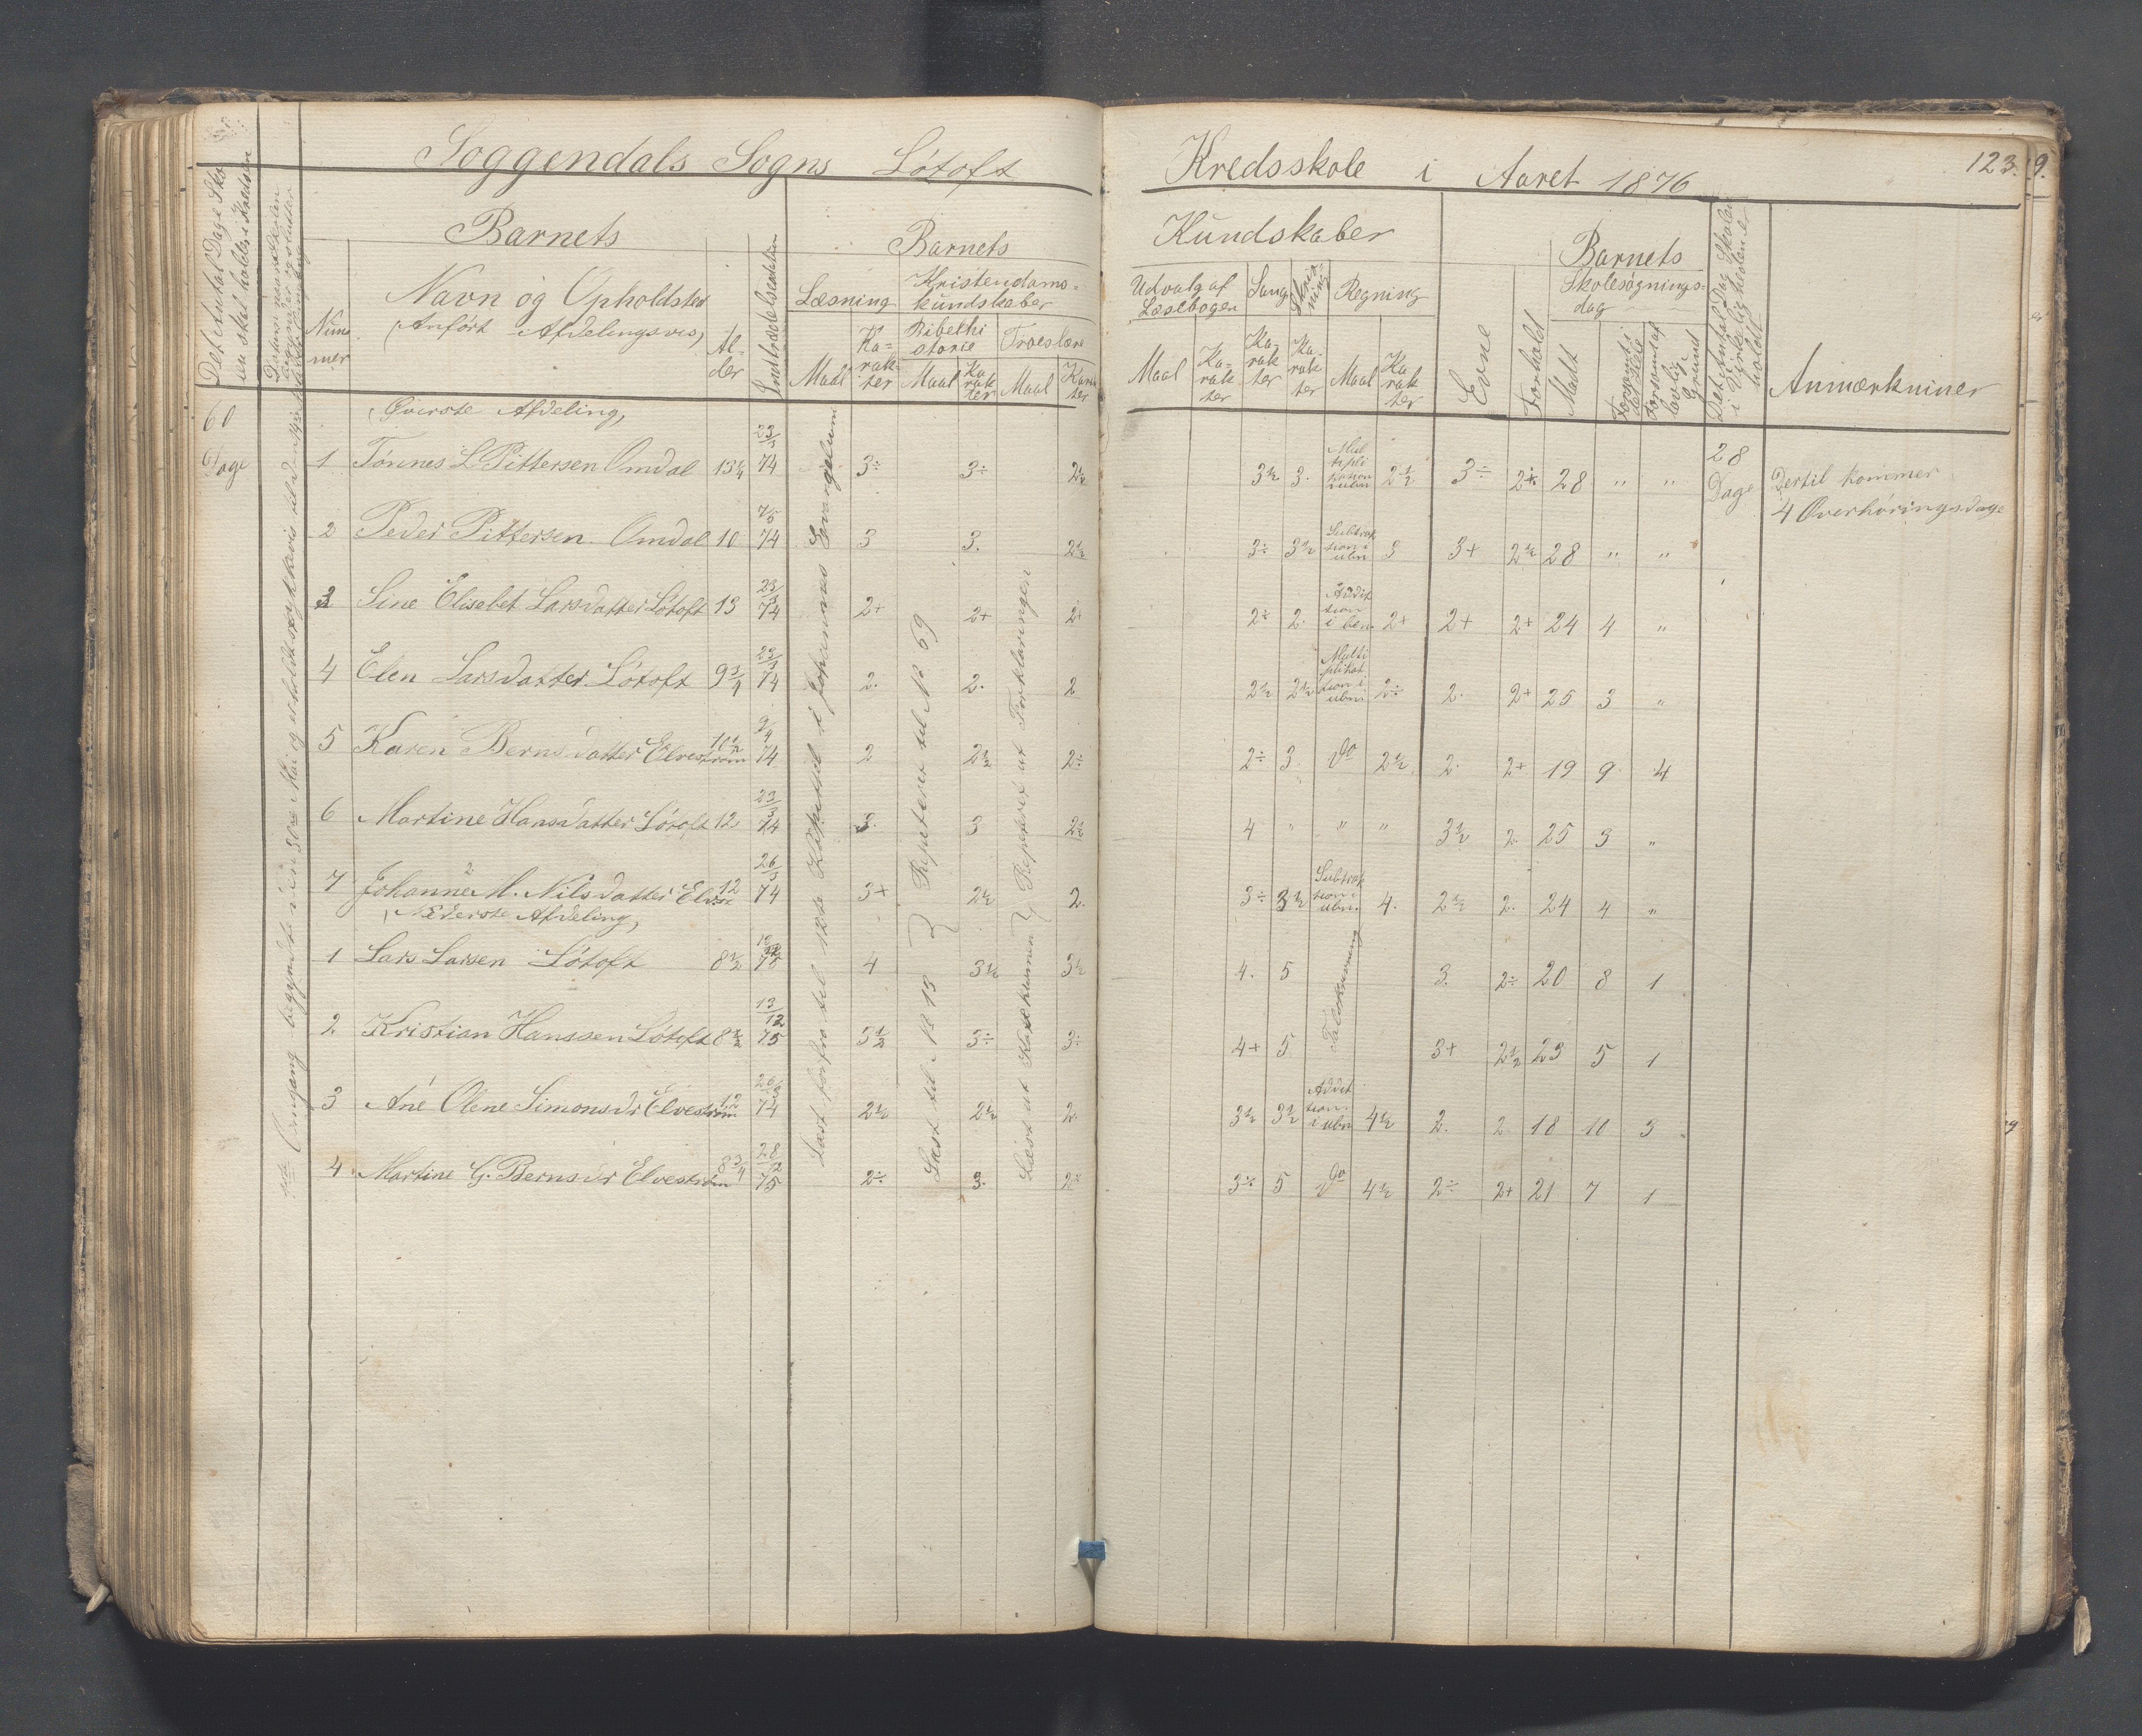 Soggendals Sogns Løtoft Kredsskole i Aaret 1876 123.
Det Antal Dage Sko
len skal holdes i Kredsen
Datum naar Skolen
begynder og slutter
Num
mer
Barnets
Navn og Opholdsted
(Anført Afdelingsvis)
Al-
der
Indtrædelsesdatum
Barnets Kundskaber
Læsning
Maal
Ka-
rak-
ter
Kristendoms-
kundskaber
Bibelhi
storie
Maal
Ka
rak
ter
Troeslære
Maal
Karak
ter
Udvalg af
Læsebogen
Maal
Ka-
rak
ter
Sang
Ka-
rak
ter
Skriv-
ning
Ka-
rak
ter
Regning
Maal
Ka
rak
ter
Evne
Forhold
Barnets
Skolesøgnings-
dag
Mødt
Forsømt i
det Hele
Forsømt af
lovlig
Grund
Det Antal Dag Skolen
i Virkeligheden e
holdt
Anmærkniner
60
Dage
(Øverste Afdeling,
1 Tønnes L Pittersen Omdal 13 1/4 23/3 74 3÷ 3÷ 2 1/2 3 1/2 3. Mul tipli kation i ubn 2 1/2 3÷ 2+ 28 " " 28 Dage Dertil kommer
4 Overhøringsdage
2 Peder Pittersen Omdal 10 7/5 74 3 3. 2 1/2 3÷ 3 1/2 Subtrak tion i ubn 3 3+ 2 1/2 28 " "
3 Sine Elisebet Larsdatter Løtoft 13 23/3 74 2+ 2+ 2+ 2÷ 2. Addit tion i ben. 2+ 2+ 2+ 24 4 "
4 Elen Larsdatter Løtoft 9 3/4 23/3 74 2. 2. 2 2 1/2 2 1/2 Multi plikat tion i ubn 2÷ 2. 2+ 25 3 "
5 Karen Bernsdatter Elvestrøm 10 1/2 9/4 74 2 2 1/2 2÷ 2÷ 3 do 2 1/2 2. 2+ 19 9 4
6 Martine Hansdatter Løtoft 12 23/3 74 3. 3 2 1/2 4 " " " 3 1/2 2. 25 3 "
7 Johanne M. Nilsdatter Elvest 12 26/3 74 3+ 2 1/2 2. 3÷ 3 1/2 Subtrak tion i ubn. 4. 2 1/2 2. 24 4 "
(Nederste Afdeling,
1 Lars Larsen Løtoft 8 1/2 75 4 3 1/2 3 1/2 4. 5 3. 2÷ 20 8 1
2 Kristian Hanssen Løtoft 8 1/2 13/12 75 3 1/2 3÷ 3÷ 4+ 5 3+ 2 1/2 23 5 1
3 Ane Olene Simonsdr Elvestrøm 12 26/3 74 2 1/2 2 1/2 2. 3 1/2 3 1/2 Addit tion i ubn 4 1/2 2. 2 18 10 3
4 Martine G. Bernsdr Elvestrøm 8 3/4 28/12 75 2÷ 3. 2÷ 3÷ 5 do 4 1/2 2÷ 2+ 21 7 1
Læst forfra til 12te Kapittel i Johannes Evangelium
Læst til No 13 } Repeteret til No 69
Læst ut Katekismen } Repetert ut Forklaringen
Talskrivning